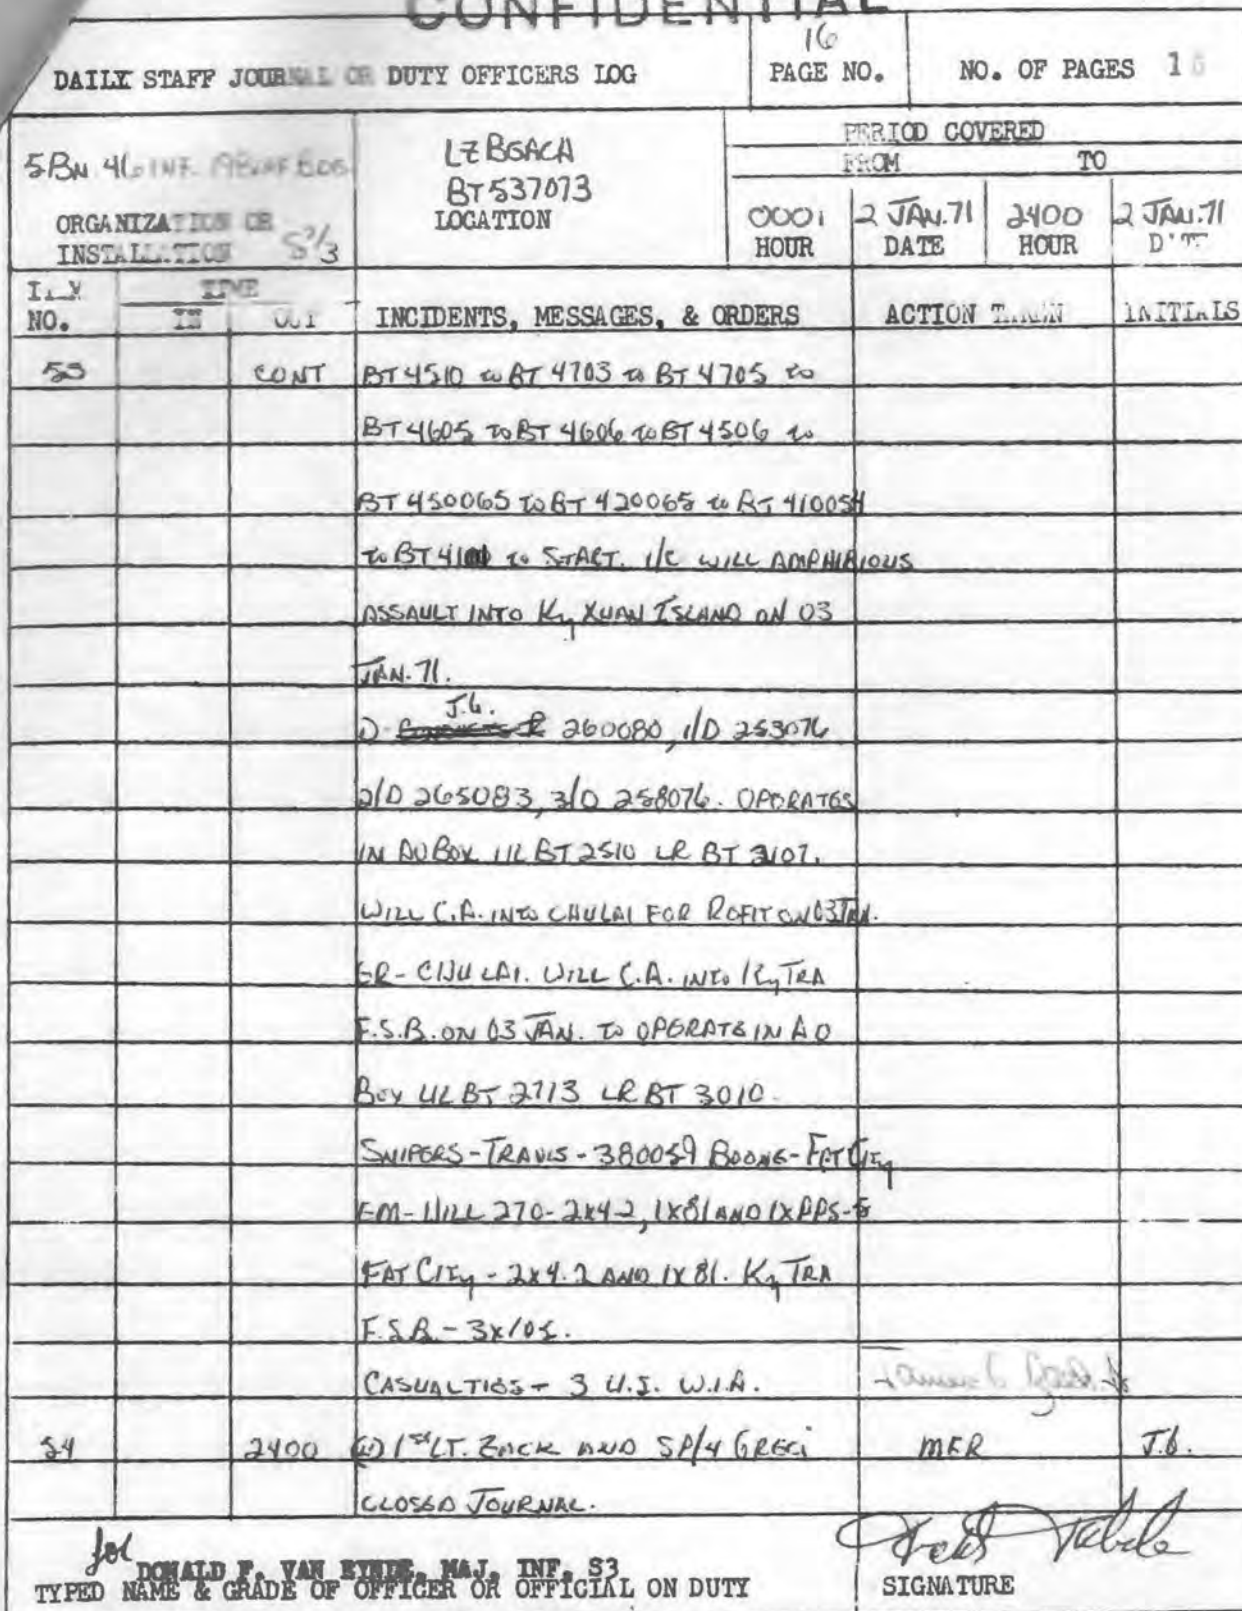 CONFIDENTIAL
DAILY STAFF JOURNAL OR DUTY OFFICERS LOG
16
PAGE NO.
NO. OF PAGES 16
5 BN 46 INF
ORGANIZATION OR
INSTALLATION
LZ BEACH
BT 537073
LOCATION
PERIOD COVERED
FROM TO
0001 2 JAN.71 2400 2 JAN.71
HOUR DATE HOUR DATE
ITEM
NO.
TIME
IN OUT
INCIDENTS, MESSAGES, & ORDERS
ACTION TAKEN
INITIALS
53 CONT BT 4510 to BT 4703 to BT 4705 to
BT 4605 to BT 4606 to BT 4506 to
BT 450065 to BT 420065 to BT 410054
to to START. 1/C WILL AMPHIBIOUS
ASSAULT INTO Ky XUAN ISLAND ON 03
JAN. 71.
J.G.
D- 260080, 1/D 253076
2/D 265083, 3/D 258076. OPERATES
IN AO BOX UL BT 2510 LR BT 3107.
WILL C.A. INTO CHULAI FOR REFIT ON 03 JAN.
ER- CHU LAI. WILL C.A. INTO Ky TRA
F.S.B. ON 03 JAN. TO OPERATE IN AO
BOX UL BT 2713 LR BT 3010.
SNIPERS - TRAVIS - 380059 BOONE - FAT CITY
EM- HILL 270- 2x4.2, 1x81 AND 1xPPS-5
FAT CITY - 2x4.2 AND 1x81. Ky TRA
F.S.B. - 3x105.
CASUALTIES - 3 U.S. W.I.A.
54 2400 (U) 1st LT. ZACK AND SP/4 GRECI MER J.G.
CLOSED JOURNAL.
for
DONALD F. VAN EYNDE, MAJ, INF, S3
TYPED NAME & GRADE OF OFFICER OR OFFICIAL ON DUTY
SIGNATURE